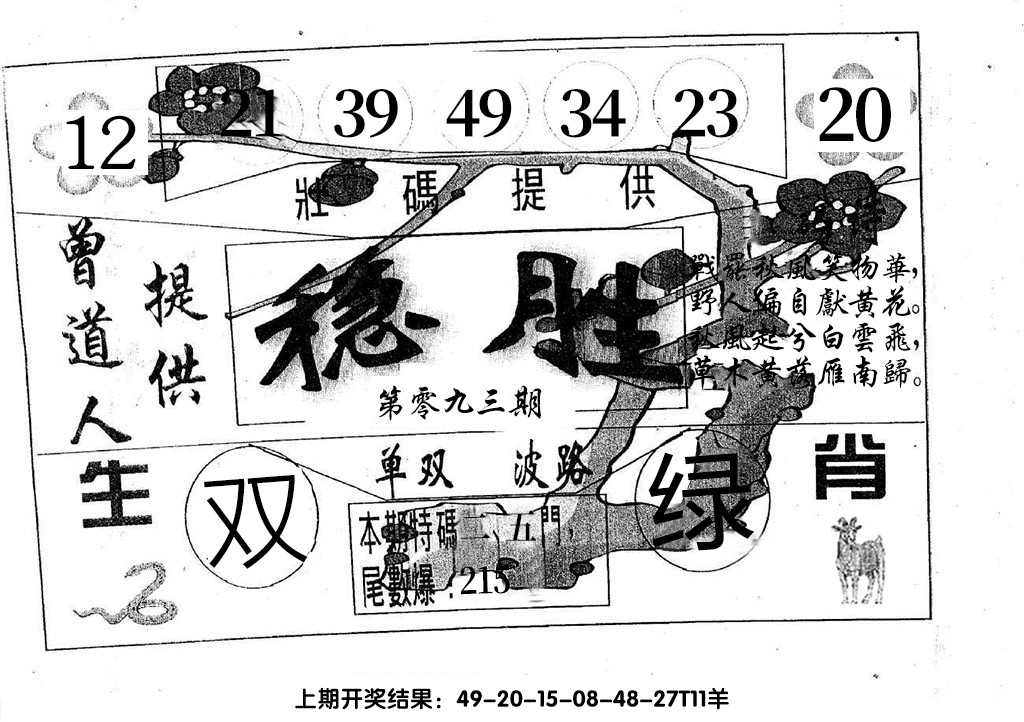 12 21 39 49 34 23 20
壯碼提供
曾道人
提供
稳胜
第零九三期
特
戰罷秋風笑物華，
野人偏自獻黃花。
秋風起兮白雲飛，
草木黃落雁南歸。
单双 波路
生肖
双
绿
本期特碼二、五門，
尾數爆：215
上期开奖结果：49-20-15-08-48-27T11羊